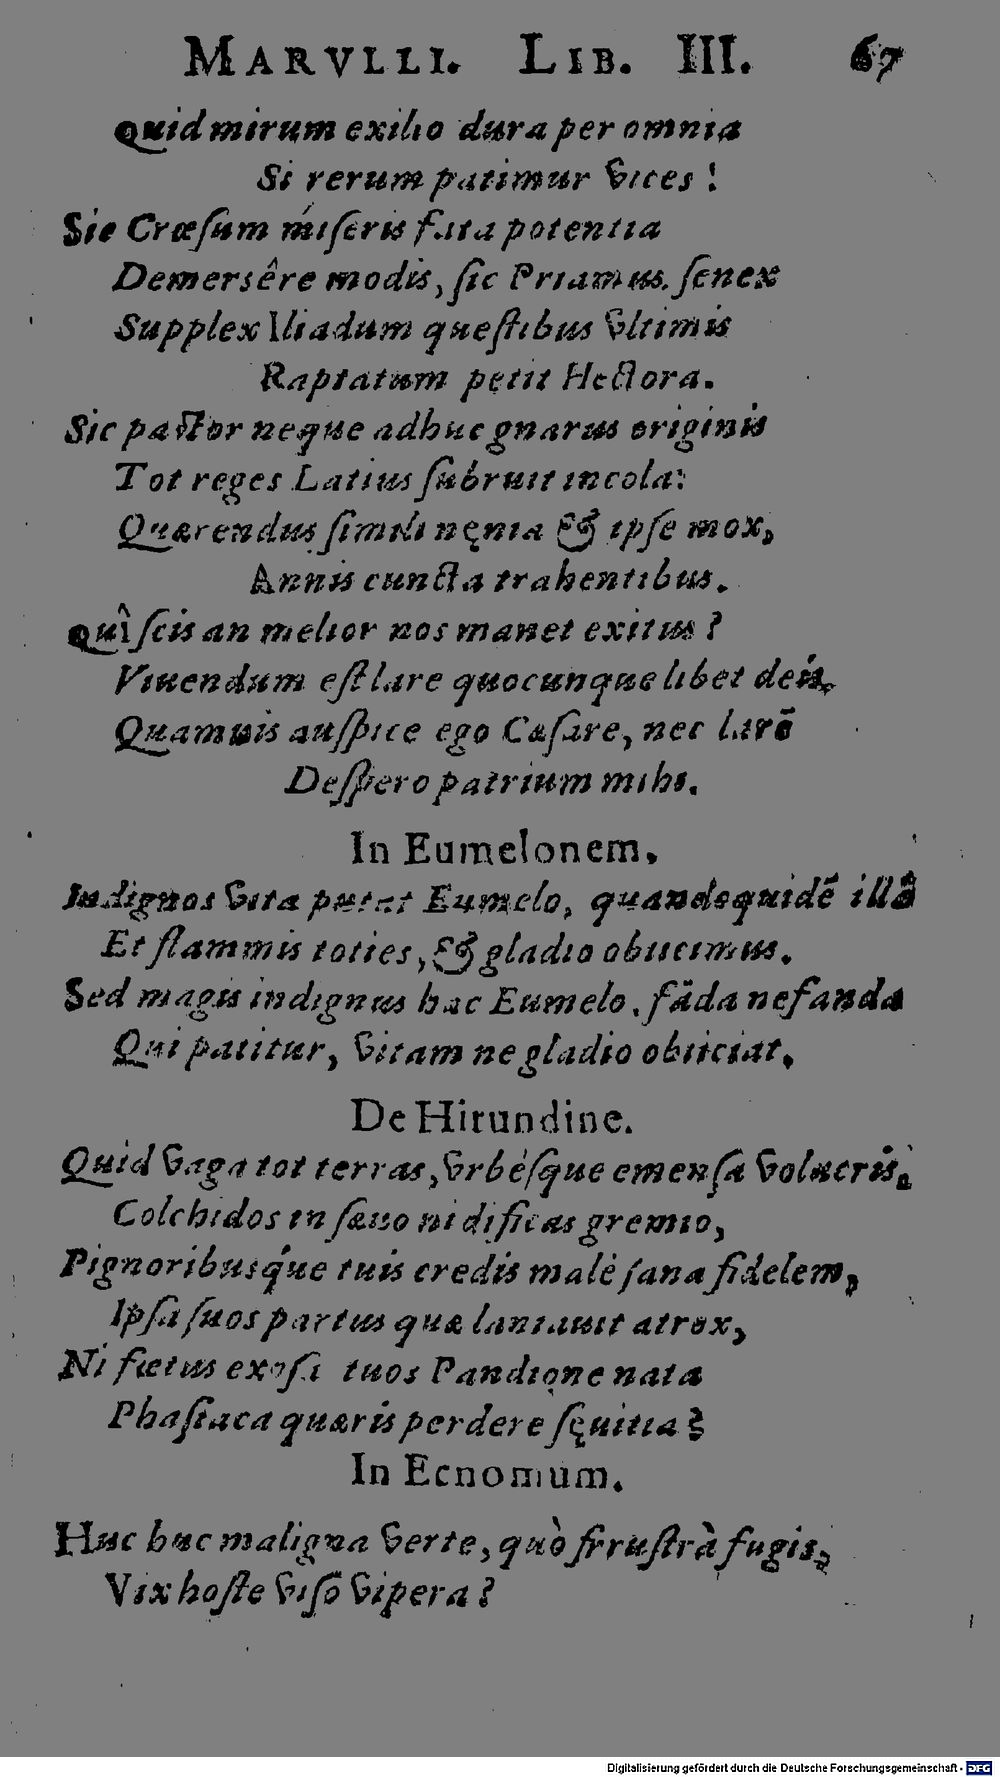 MARVLLI. LIB. III. 67
Quid mirum exilio dura per omnia
Si rerum patimur vices!
Sic Crœſum miſeris fata potentia
Demersêre modis, ſic Priamus. ſenex
Supplex Iliadum queſtibus vltimis
Raptatum petit Hectora.
Sic paſtor neque adhuc gnarus originis
Tot reges Latius ſubruit incola:
Quærendus ſimili nęnia & ipſe mox,
Annis cuncta trahentibus.
Quî ſcis an melior nos manet exitus?
Viuendum eſt lare quocunque libet deis.
Quamuis auſpice ego Cæſare, nec larē
Deſpero patrium mihi.
In Eumelonem.
Indignos vita putat Eumelo, quandoquidē illō
Et flammis toties, & gladio obiicimus.
Sed magis indignus hac Eumelo. fāda nefanda
Qui patitur, vitam ne gladio obiiciat.
De Hirundine.
Quid vaga tot terras, vrbéſque emenſa volucris,
Colchidos in ſæuo nidificas gremio,
Pignoribusq́ue tuis credis malè ſana fidelem,
Ipſa ſuos partus quæ laniauit atrox,
Ni fœtus exoſa tuos Pandione nata
Phaſiaca quæris perdere ſęuitia?
In Ecnomum.
Huc huc maligna verte, quò frruſtrà fugis,
Vix hoſte viſō vipera?
Digitalisierung gefördert durch die Deutsche Forschungsgemeinschaft - DFG